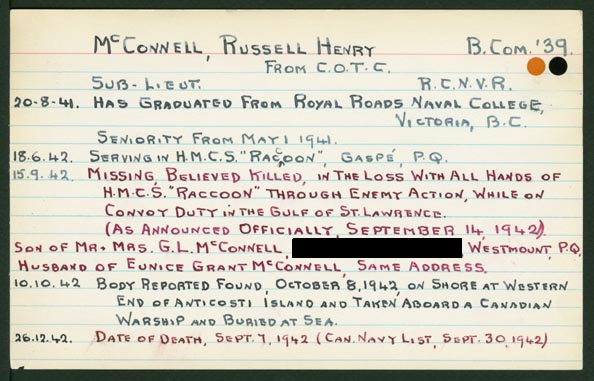 McCONNELL, RUSSELL HENRY B. COM. '39.
FROM C.O.T.C.
SUB-LIEUT. R.C.N.V.R.
20-8-41. HAS GRADUATED FROM ROYAL ROADS NAVAL COLLEGE,
VICTORIA, B.C.
SENIORITY FROM MAY 1 1941.
18.6.42. SERVING IN H.M.C.S. "RACCOON", GASPÉ, P.Q.
15.9.42. MISSING, BELIEVED KILLED, IN THE LOSS WITH ALL HANDS OF
H.M.C.S. "RACCOON" THROUGH ENEMY ACTION, WHILE ON
CONVOY DUTY IN THE GULF OF ST. LAWRENCE.
(AS ANNOUNCED OFFICIALLY, SEPTEMBER 14, 1942).
SON OF MR + MRS. G.L. McCONNELL, WESTMOUNT, P.Q.
HUSBAND OF EUNICE GRANT McCONNELL, SAME ADDRESS.
10.10.42 BODY REPORTED FOUND, OCTOBER 8, 1942, ON SHORE AT WESTERN
END OF ANTICOSTI ISLAND AND TAKEN ABOARD A CANADIAN
WARSHIP AND BURIED AT SEA.
26.12.42. DATE OF DEATH, SEPT. 7, 1942 (CAN. NAVY LIST, SEPT. 30, 1942)